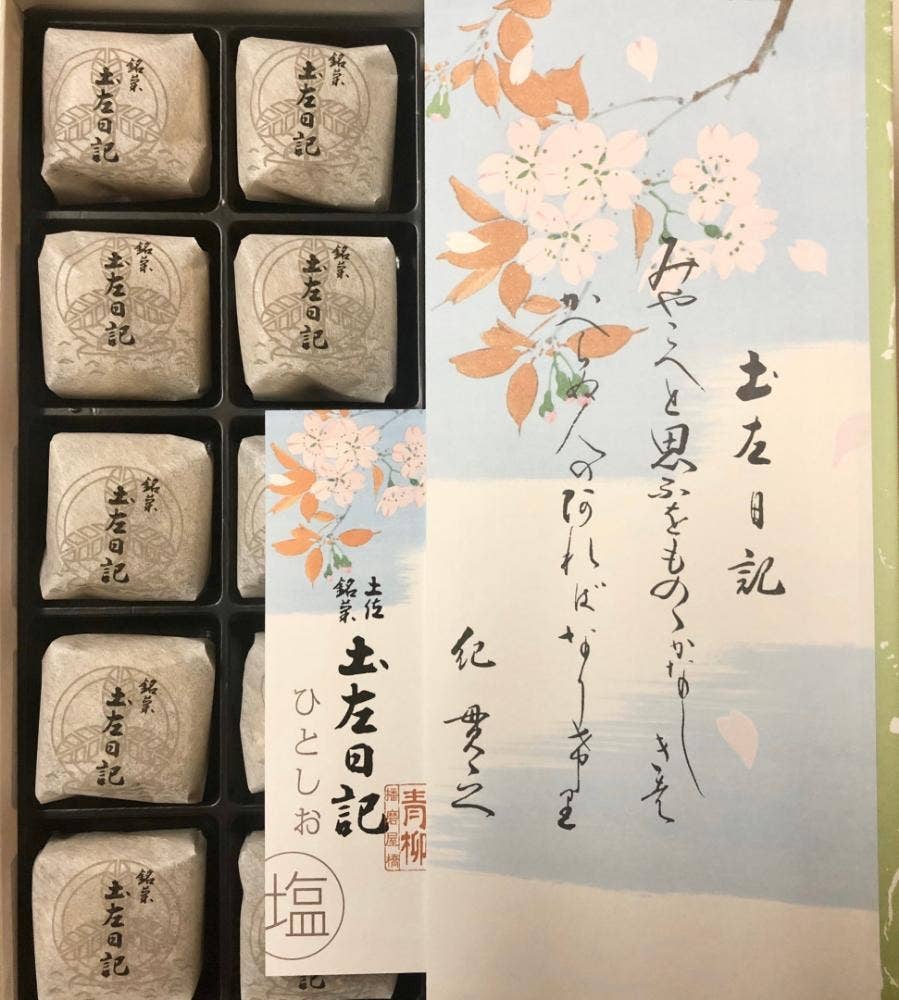 土左日記
みやこへと思ふをものゝかなしき者
かへらぬ人の阿ればなり希里
紀貫之
土佐
銘菓
土左日記
ひとしお
塩
青柳
播磨屋橋
銘菓
土左日記
銘菓
土左日記
銘菓
土左日記
銘菓
土左日記
銘菓
土左日記
銘菓
土左日記
銘菓
土左日記
記